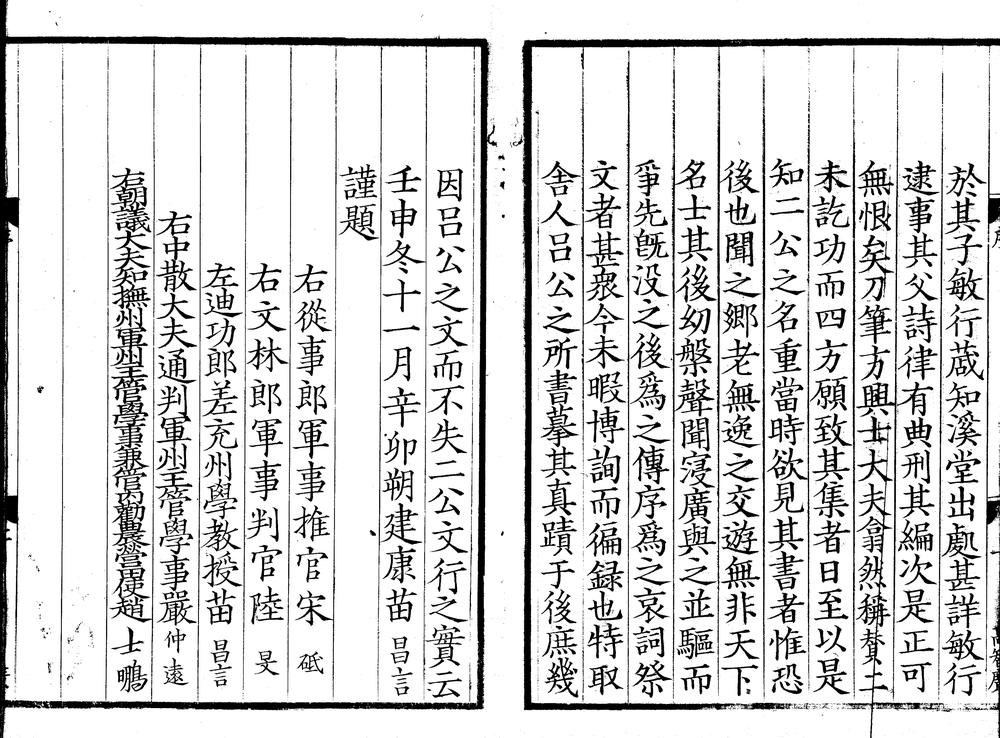 於其子敏行蕆知溪堂出處甚詳敏行
逮事其父詩律有典刑其編次是正可
無恨矣刀筆方興士大夫翕然稱賛二
未訖功而四方願致其集者日至以是
知二公之名重當時欲見其書者惟恐
後也聞之鄉老無逸之交遊無非天下
名士其後幼槃聲聞寖廣與之並驅而
爭先旣没之後爲之傳序爲之哀詞祭
文者甚衆今未暇博詢而徧録也特取
舍人吕公之所書摹其真蹟于後庶幾
因吕公之文而不失二公文行之實云
壬申冬十一月辛卯朔建康苗昌言
謹題
右從事郎軍事推官宋砥
右文林郎軍事判官陸旻
左迪功郎差充州學教授苗昌言
右中散大夫通判軍州主管學事嚴仲遠
右朝議大夫知撫州軍州主管學事兼管内勸農營田使趙士鵬